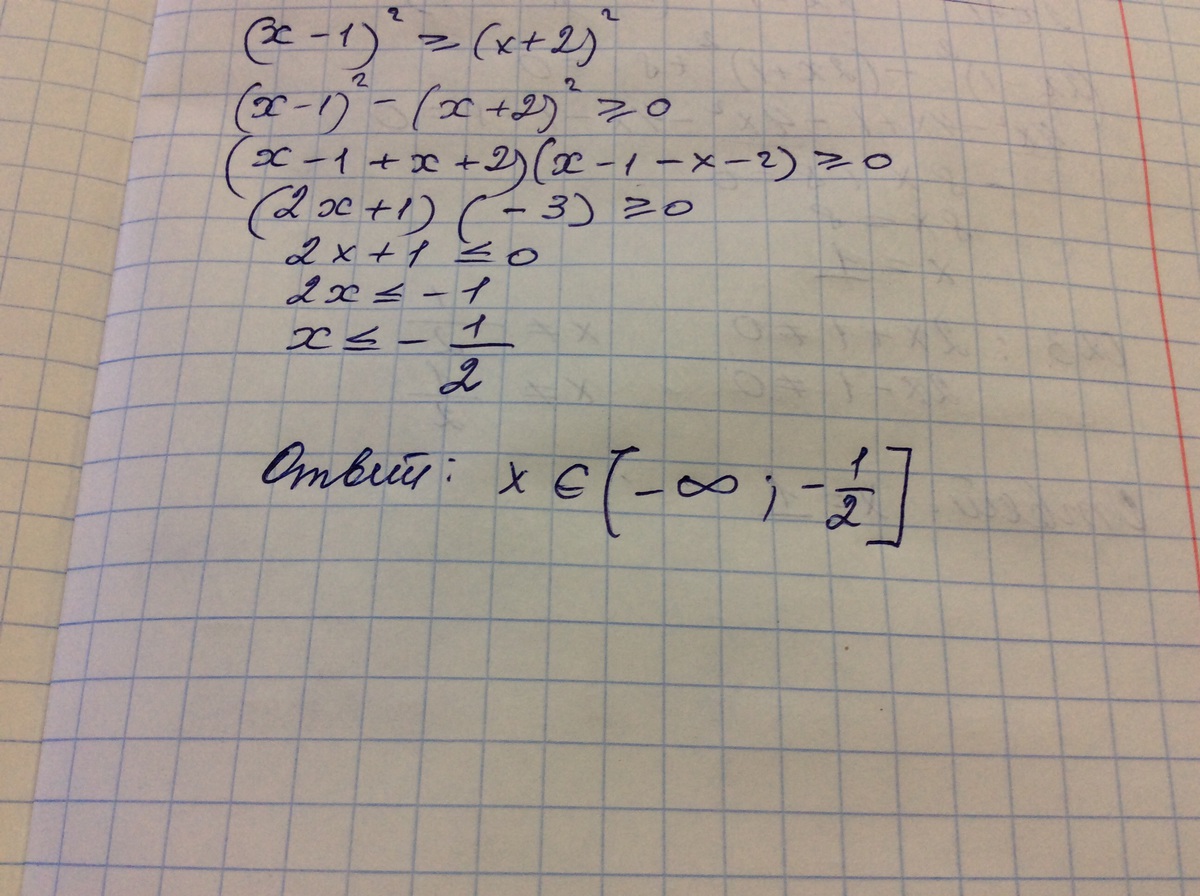 (x-1)² ≥ (x+2)²
(x-1)² - (x+2)² ≥ 0
(x-1+x+2)(x-1-x-2) ≥ 0
(2x+1) (-3) ≥ 0
2x+1 ≤ 0
2x ≤ -1
x ≤ - 1/2
Ответ: x ∈ (-∞; -1/2]